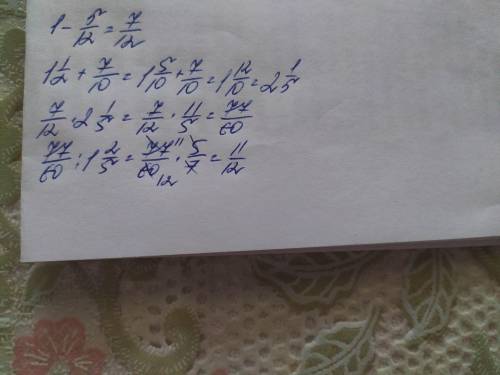 1 - 5/12 = 7/12
1 1/2 + 7/10 = 1 5/10 + 7/10 = 1 12/10 = 2 1/5
7/12 · 2 1/5 = 7/12 · 11/5 = 77/60
77/60 : 1 2/5 = 77 11/60 12 · 5/7 = 11/12